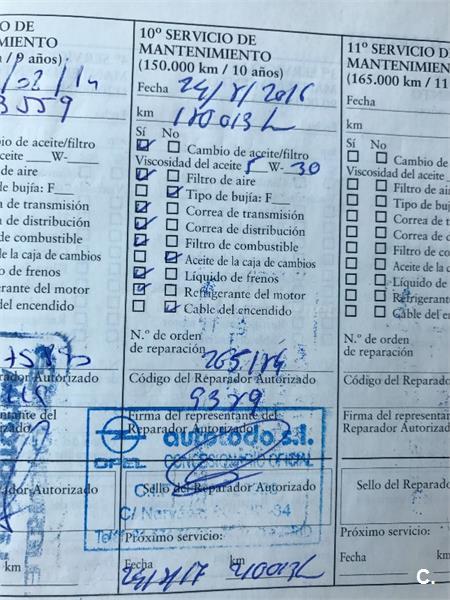 O DE
MIENTO
/ 9 años)
/02/14
3559
bio de aceite/filtro
ceite ____W-____
o de aire
de bujía: F___
a de transmisión
a de distribución
de combustible
de la caja de cambios
o de frenos
erante del motor
del encendido
arador Autorizado
ntante del
izado
ador Autorizado
km
10º SERVICIO DE
MANTENIMIENTO
(150.000 km / 10 años)
Fecha
km
Sí No
Cambio de aceite/filtro
Viscosidad del aceite 5 W-30
Filtro de aire
Tipo de bujía: F___
Correa de transmisión
Correa de distribución
Filtro de combustible
Aceite de la caja de cambios
Líquido de frenos
Refrigerante del motor
Cable del encendido
N.º de orden
de reparación
Código del Reparador Autorizado
Firma del representante del
Reparador Autorizado
autotodo s.l.
OPEL CONCESIONARIO OFICIAL
Sello del Reparador Autorizado
Próximo servicio:
Fecha km
11º SERVICIO
MANTENIMIEN
(165.000 km / 11
Fecha
km
Sí No
Cambio de
Viscosidad del aceite
Filtro de air
Tipo de buj
Correa de t
Correa de d
Filtro de co
Aceite de la
Líquido de
Refrigerant
Cable del e
N.º de orden
de reparación
Código del Reparad
Firma del representan
Reparador Autorizado
Sello del Repar
Próximo servicio:
Fecha
c.